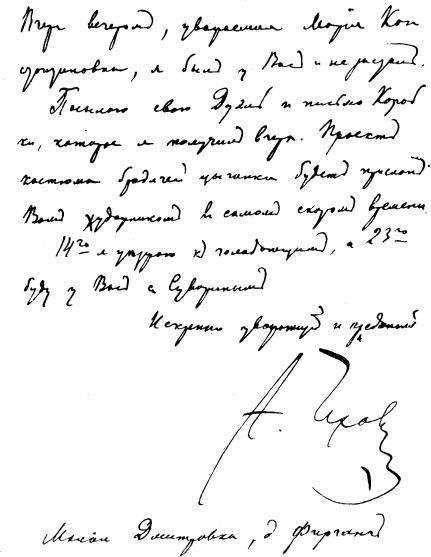 Вчера вечеромъ, уважаемая Марія Кон
стантиновна, я былъ у Васъ и не засталъ.
Посылаю свою Дуэль и письмо Короб
ки, которое я получилъ вчера. Проектъ
костюма бродячей цыганки будетъ присланъ
Вамъ художникомъ въ самомъ скоромъ времени.
14го я утрою къ голодающимъ, а 23го
буду у Васъ съ Суворинымъ
Искренно уважающій и преданный
А. Чехов
Малая Дмитровка, д Фирганъ